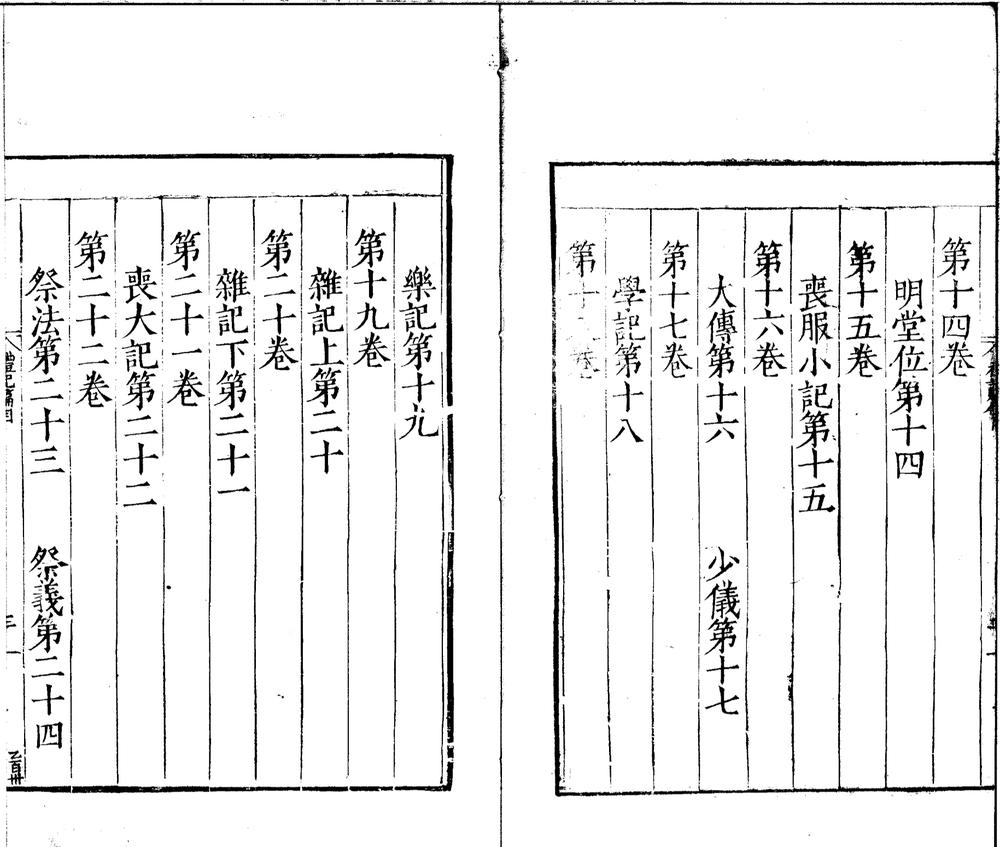 第十四卷
明堂位第十四
第十五卷
喪服小記第十五
第十六卷
大傳第十六　少儀第十七
第十七卷
學記第十八
第十卷
樂記第十九
第十九卷
雜記上第二十
第二十卷
雜記下第二十一
第二十一卷
喪大記第二十二
第二十二卷
祭法第二十三　祭義第二十四